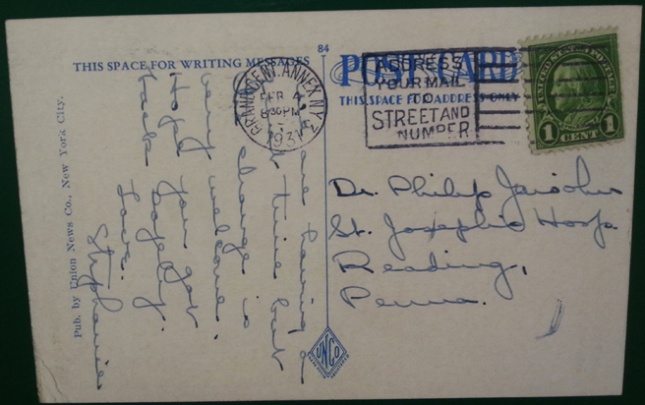 84
THIS SPACE FOR WRITING MESSAGES
POST CARD
THIS SPACE FOR ADDRESS ONLY
GRAND CENT. ANNEX N.Y.
FEB 4
630PM
1931
3
ADDRESS
YOUR MAIL
TO
STREET AND
NUMBER
UNITED STATES POSTAGE
1 CENT 1
are having a
time but
change is
very welcome.
Hope you got
back safely.
Love.
Stephanie
Dr. Philip Jaisohn
St. Josephs Hosp
Reading,
Penna.
Pub. by Union News Co., New York City.
UNCO